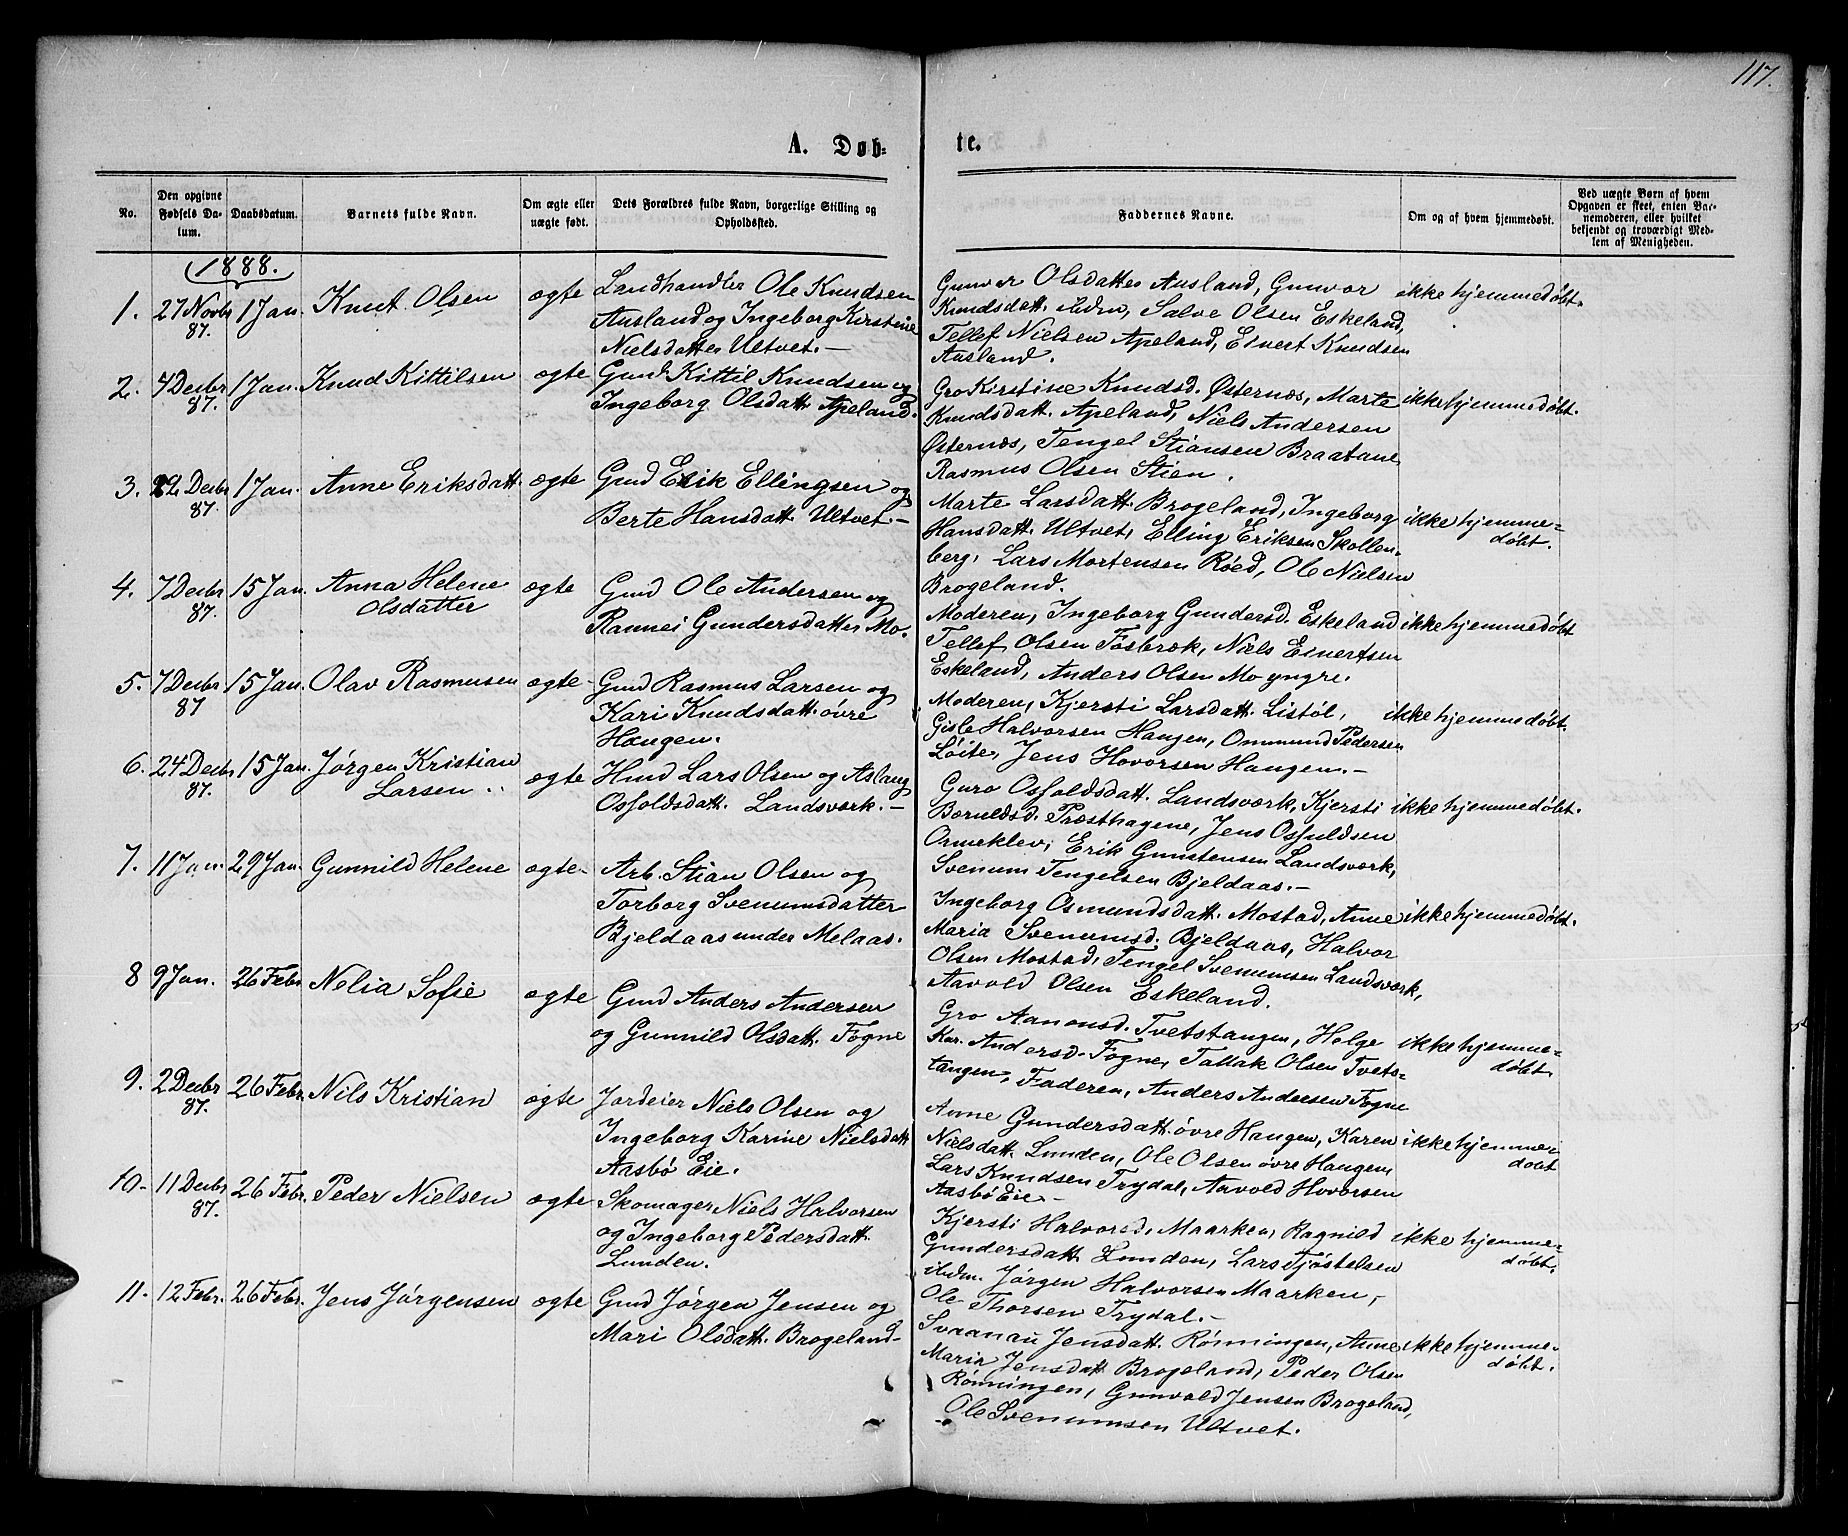 117.
A. Døb-
te.
No.
Den opgivne Fødsels Da-
tum.
Daabsdatum.
Barnets fulde Navn.
Om ægte eller
uægte født.
Dets Forældres fulde Navn, borgerlige Stilling og
Opholdssted.
Faddernes Navne.
Om og af hvem hjemmedøbt.
Ved uægte Børn af hvem
Opgaven er skeet, enten Bar-
nemoderen, eller hvilket
bekjendt og troværdigt Med-
lem af Menigheden.
1888.
1. 27 Novbr 87. 1 Jan. Knut Olsen ægte
Landhandler Ole Knudsen
Ausland og Ingeborg Kirstine
Nielsdatter Ultvet.-
Gunvor Olsdatter Ausland, Gunvor
Knudsdatt. ibidm, Salve Olsen Eskeland,
Tellef Nielsen Apeland, Eivert Knudsen
Ausland.
ikke hjemmedøbt.
2. 4 Decbr 87. 1 Jan. Knud Kittilsen ægte
Gmd. Kittil Knudsen og
Ingeborg Olsdatt. Apeland.
Gro Kirstine Knudsd. Østernæs, Marte
Knudsdatt. Apeland, Niels Andersen
Østernæs, Tengel Stiansen Braatane
Rasmus Olsen Stien.
ikke hjemmedøbt.
3. 22 Decbr 87. 1 Jan. Anne Eriksdatt. ægte
Gmd Erik Ellingsen og
Berte Hansdatt. Ultvet.-
Marte Larsdatt. Brogeland, Ingeborg
Hansdatt. Ultvet, Elling Eriksen Skollen-
berg, Lars Mortensen Røed, Ole Nielsen
Brogeland.
ikke hjemme-
døbt.
4. 7 Decbr 87. 15 Jan. Anna Helene
Olsdatter
ægte
Gmd Ole Andersen og
Rannei Gundersdatter Mo.
Moderen, Ingeborg Gundersd. Eskeland
Tellef Olsen Fosbræk, Niels Eivertsen
Eskeland, Anders Olsen Mo yngre.
ikke hjemmedøbt
5. 7 Decbr 87 15 Jan. Olav Rasmusen ægte-
Gmd Rasmus Larsen og
Kari Knudsdatt. øvre
Haugen.
Moderen, Kjersti Larsdatt. Listøl,
Gisle Halvorsen Haugen, Ommund Pedersen
Løite, Jens Hovorsen Haugen.-
ikke hjemmedøbt.
6. 24 Decbr 87. 15 Jan. Jørgen Kristian
Larsen
ægte
Hmd Lars Olsen og Aslaug
Osfoldsdatt. Landsværk.-
Guro Osfoldsdatt. Landsværk, Kjersti
Beruldsd. Præsthagene, Jens Osfuldsen
Ormeklev, Erik Gunstensen Landsværk,
Svenum Tengelsen Bjeldaas.-
ikke hjemmedøbt.
7. 11 Jan. 29 Jan. Gunnild Helene ægte-
Arb. Stian Olsen og
Torborg Svenumsdatter
Bjeldaas under Melaas.
Ingeborg Osmundsdatt. Mostad, Anne
Maria Svenumsd. Bjeldaas, Halvor
Olsen Mostad, Tengel Svenumsen Landsværk,
Aavold Olsen Eskeland.
ikke hjemmedøbt.
8 9 Jan. 26 Febr. Nelia Sofie ægte
Gmd Anders Andersen
og Gunnild Olsdatt. Fogne
Gro Aanonsd. Tvetstangen, Helge
Kar. Andersd. Fogne, Tallak Olsen Tvets-
tangen, Faderen, Anders Andersen Fogne
ikke hjemme-
døbt.
9. 2 Decbr 87. 26 Febr. Nils Kristian ægte
Jordeier Niels Olsen og
Ingeborg Karine Nielsdatt
Aasbø Eie.
Anne Gundersdatt. øvre Haugen, Karen
Nielsdatt. Lunden, Ole Olsen øvre Haugen,
Lars Knudsen Trydal, Aavold Hovorsen
Aasbø Eie.-
ikke hjemme-
døbt
10. 11 Decbr 87. 26 Febr. Peder Nielsen ægte
Skomager Niels Halvorsen
og Ingeborg Pedersdatt.
Lunden.
Kjersti Halvorsd. Maarken, Ragnild
Gundersdatt. Lunden, Lars Tjøstelsen
ibidm. Jørgen Halvorsen Maarken,
Ole Thorsen Trydal.-
ikke hjemme-
døbt.
11. 12 Febr. 26 Febr. Jens Jørgensen ægte
Gmd Jørgen Jensen og
Mari Olsdatt. Brogeland-
Svanau Jensdatt. Rønningen, Anne
Maria Jensdatt Brogeland, Peder Olsen
Rønningen, Gunvald Jensen Brogeland,
Ole Svenumsen Ultvet.
ikke hjemme-
døbt.